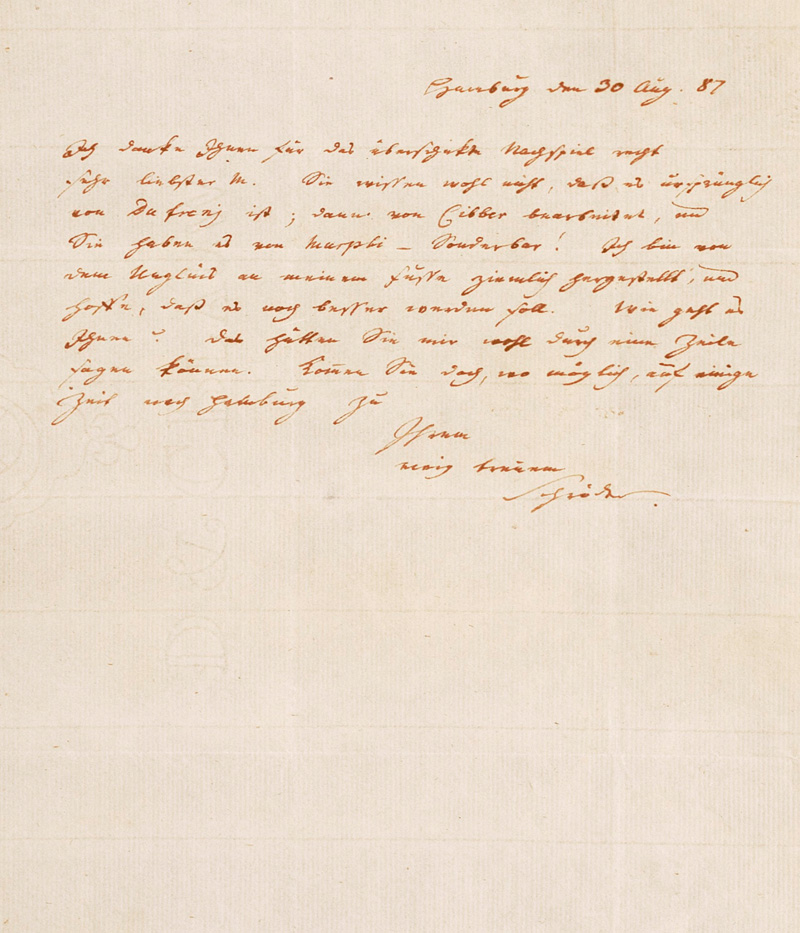 Hamburg den 30 Aug. 87
Ich danke Ihnen für das überschikte Nachspiel recht
sehr liebster M. Sie wissen wohl nicht, daß es ursprünglich
von Dufreny ist; dann von Cibber bearbeitet, und
Sie haben es von Murphi – Sonderbar! Ich bin von
dem Unglück an meinem Fusse ziemlich hergestellt, und
hoffe, daß es noch besser werden soll. Wie geht es
Ihnen? Das hätten Sie mir wohl durch eine Zeile
sagen können. Kommen Sie doch, wo möglich, auf einige
Zeit nach Hamburg zu
Ihrem
ewig treuem
Schröder.